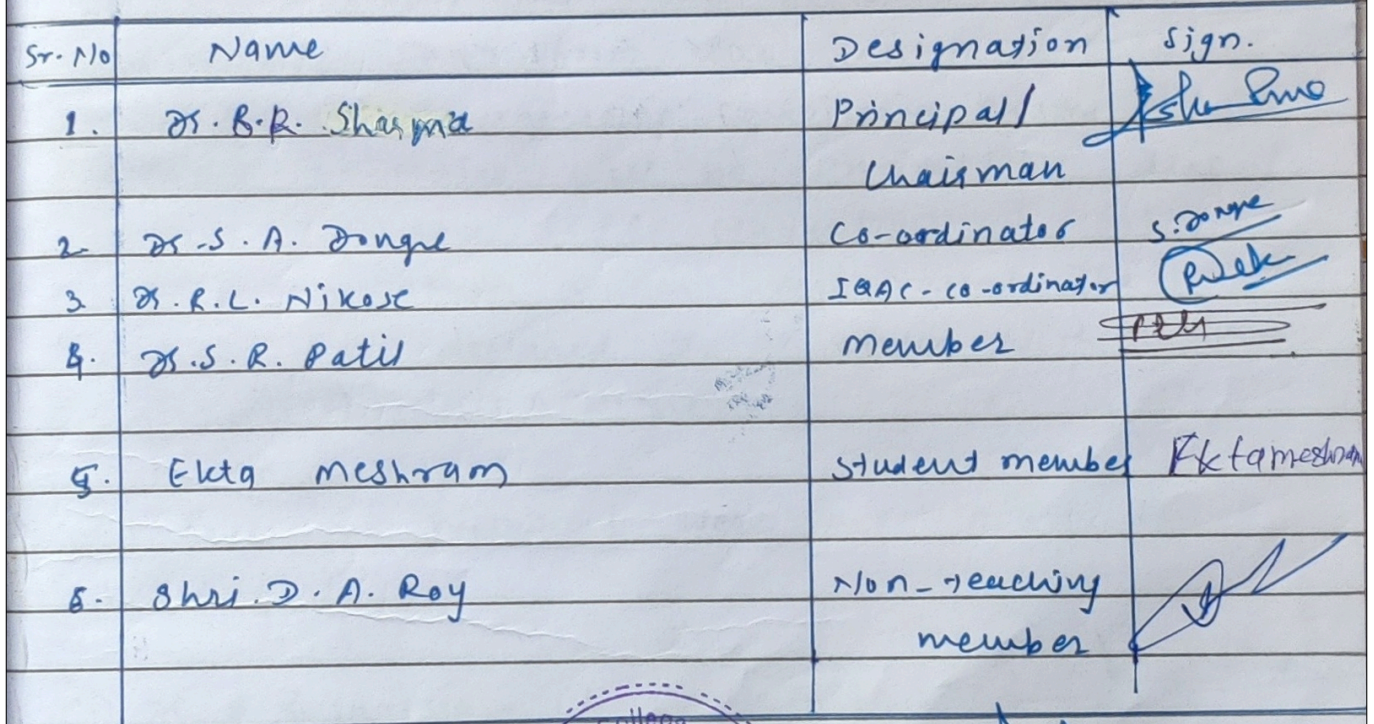 Sr. No Name Designation Sign.
1. Dr. B.R. Sharma Principal/
Chairman
2. Dr. S. A. Dongre Co-ordinator S. Dongre
3. Dr. R.L. Nikose IQAC-co-ordinator
4. Dr. S. R. Patil member
5. Ekta meshram Student member Ektameshram
6. Shri. D. A. Roy Non-Teaching
member
College